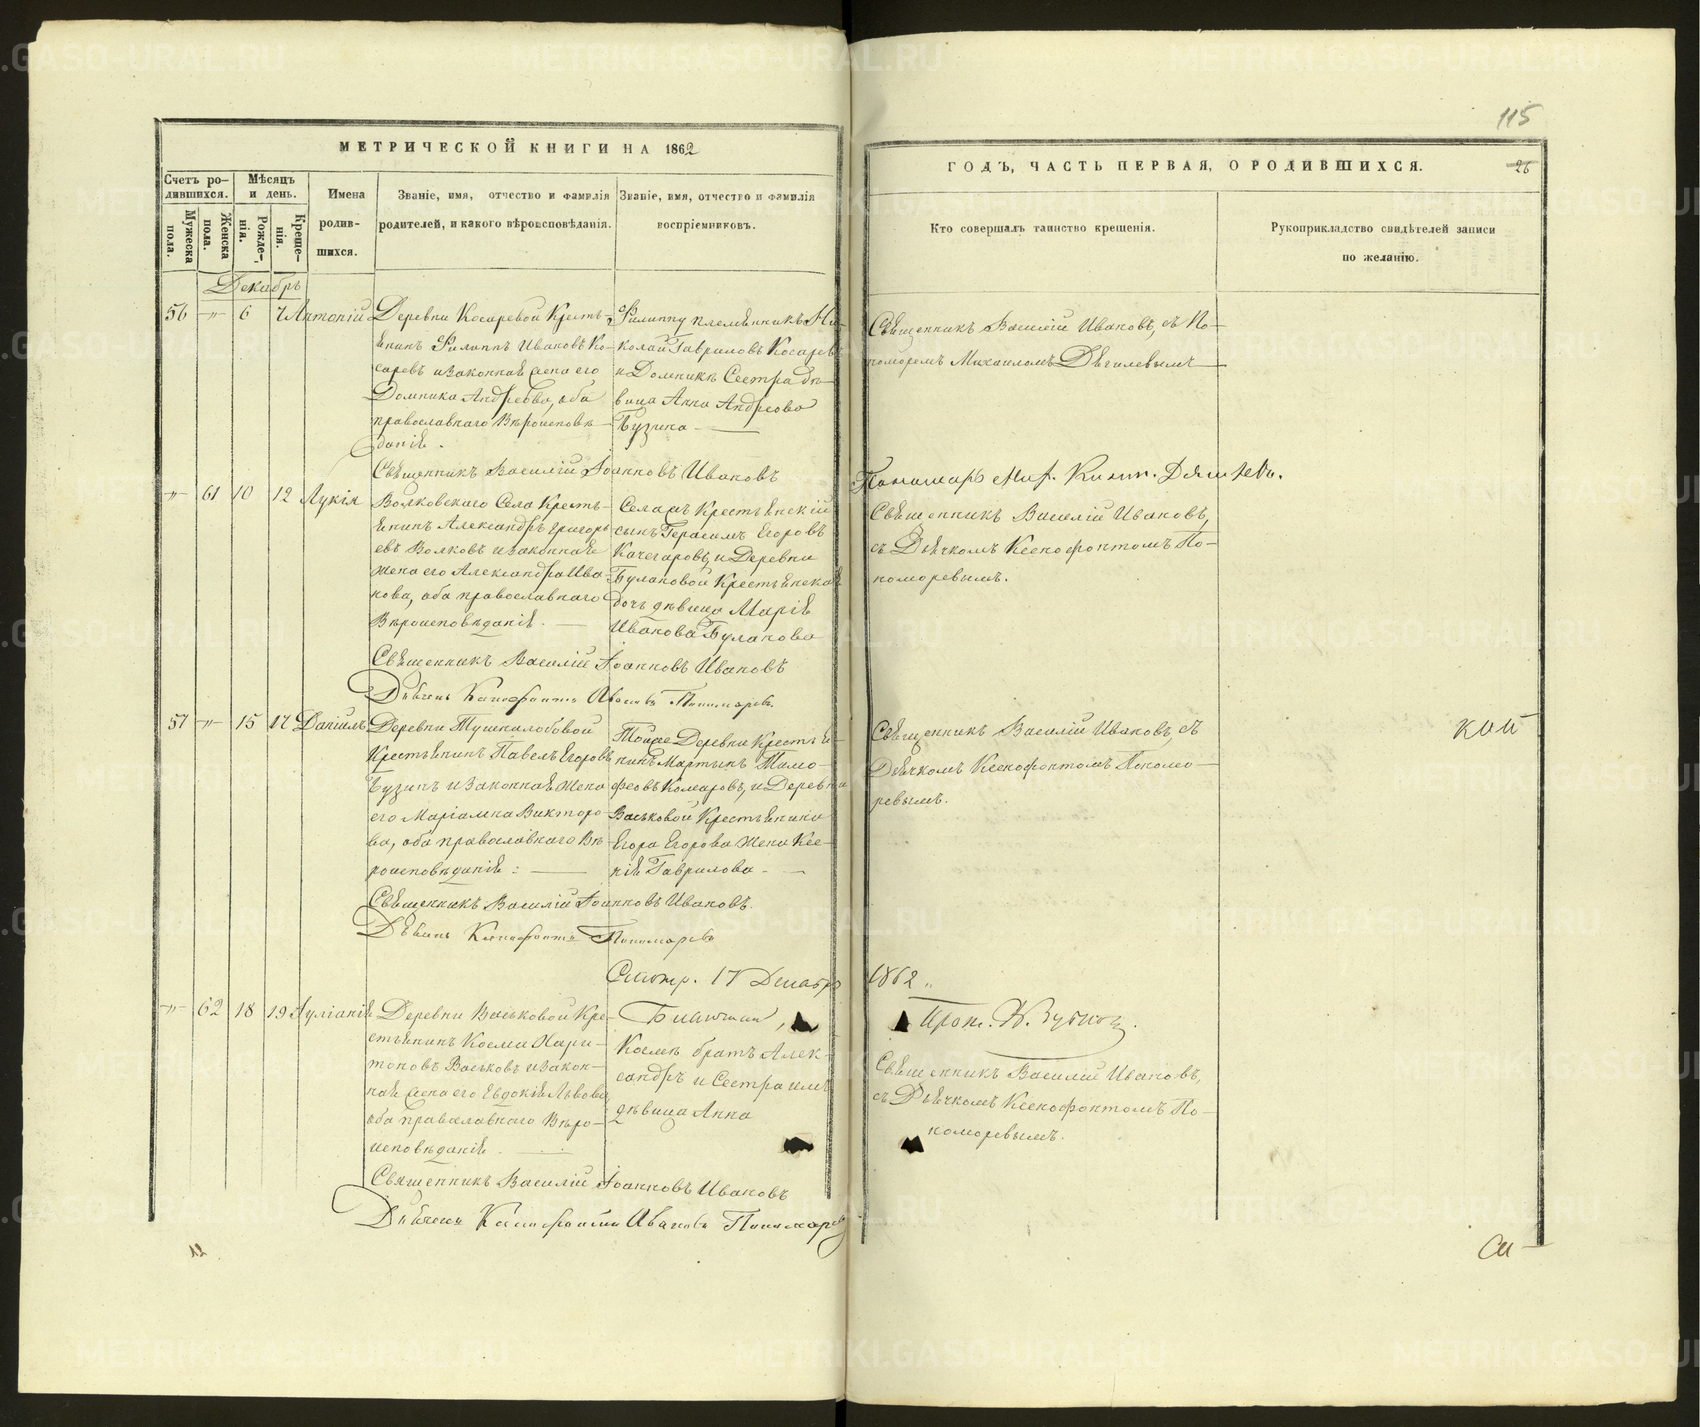 115
МЕТРИЧЕСКОЙ КНИГИ НА 1862
Счетъ ро-
дившихся.
Мѣсяцъ
и день.
Имена
родив-
шихся.
Званіе, имя, отчество и фамилія
родителей, и какого вѣроисповѣданія.
Званіе, имя, отчество и фамилія
воспріемниковъ.
Мужеска
пола.
Женска
пола.
Рожде-
нія.
Креще-
нія.
ГОДЪ, ЧАСТЬ ПЕРВАЯ, О РОДИВШИХСЯ.
26
Кто совершалъ таинство крещенія.
Рукоприкладство свидѣтелей записи
по желанію.
Декабрь
56 —"— 6 7 Антоній
Деревни Косаревой Кресть-
янинъ Филиппъ Ивановъ Ко-
саревъ и законная жена его
Домника Андреева, оба
православнаго Вѣроисповѣ-
данія.
Филиппу племянникъ Ни-
колай Гавриловъ Косаревъ
и Домникѣ Сестра дѣ-
вица Анна Андреева
Бузина
Священникъ Василій Ивановъ, съ По-
номаремъ Михаиломъ Дягилевымъ
Священникъ Василій Іоанновъ Ивановъ
Пономарь Мих. Дягилевъ.
—"— 61 10 12 Лукія
Волковскаго Села Кресть-
янинъ Александръ Григорь-
евъ Волковъ и законная
жена его Александра Ива-
нова, оба православнаго
Вѣроисповѣданія.
Села Крестьянскій
сынъ Герасимъ Егоровъ
Качегаровъ, и Деревни
Булановой Крестьянская
дочь дѣвица Марія
Иванова Буланова
Священникъ Василій Ивановъ,
съ Дьячкомъ Ксенофонтомъ По-
номаревымъ.
Священникъ Василій Іоанновъ Ивановъ
Дьячекъ Ксенофонтъ Ивановъ Пономаревъ.
57 —"— 15 17 Даніилъ
Деревни Тушналобовой
Крестьянинъ Павелъ Егоровъ
Бузинъ и законная жена
его Маріамна Викторо-
ва, оба православнаго Вѣ-
роисповѣданія:
Тойже Деревни Крестья-
нинъ Мартынъ Тимо-
феевъ Комаровъ, и Деревни
Васьковой Крестьянина
Егора Егорова жена Ксе-
нія Гаврилова.
Священникъ Василій Ивановъ, съ
Дьячкомъ Ксенофонтомъ Пономо-
ревымъ.
Священникъ Василій Іоанновъ Ивановъ.
Дьячекъ Ксенофонтъ Пономаревъ
Смотр. 17 Декабря 1862
—"— 62 18 19 Іуліанія
Деревни Васьковой Кре-
стьянинъ Косма Хари-
тоновъ Васьковъ и закон-
ная жена его Евдокія Львова
оба Православнаго Вѣро-
исповѣданія.
Космѣ братъ Алек-
сандръ и Сестра имъ
дѣвица Анна
Священникъ Василій Ивановъ,
съ Дьячкомъ Ксенофонтомъ По-
номаревымъ.
Священникъ Василій Іоанновъ Ивановъ
Дьячекъ Ксенофонтъ Ивановъ Пономаревъ
12
METRIKI.GASO-URAL.RU